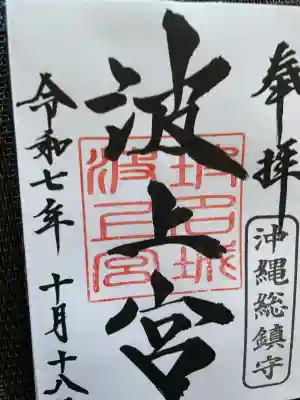 奉拝
沖縄総鎮守
波上宮
令和七年 十月十八